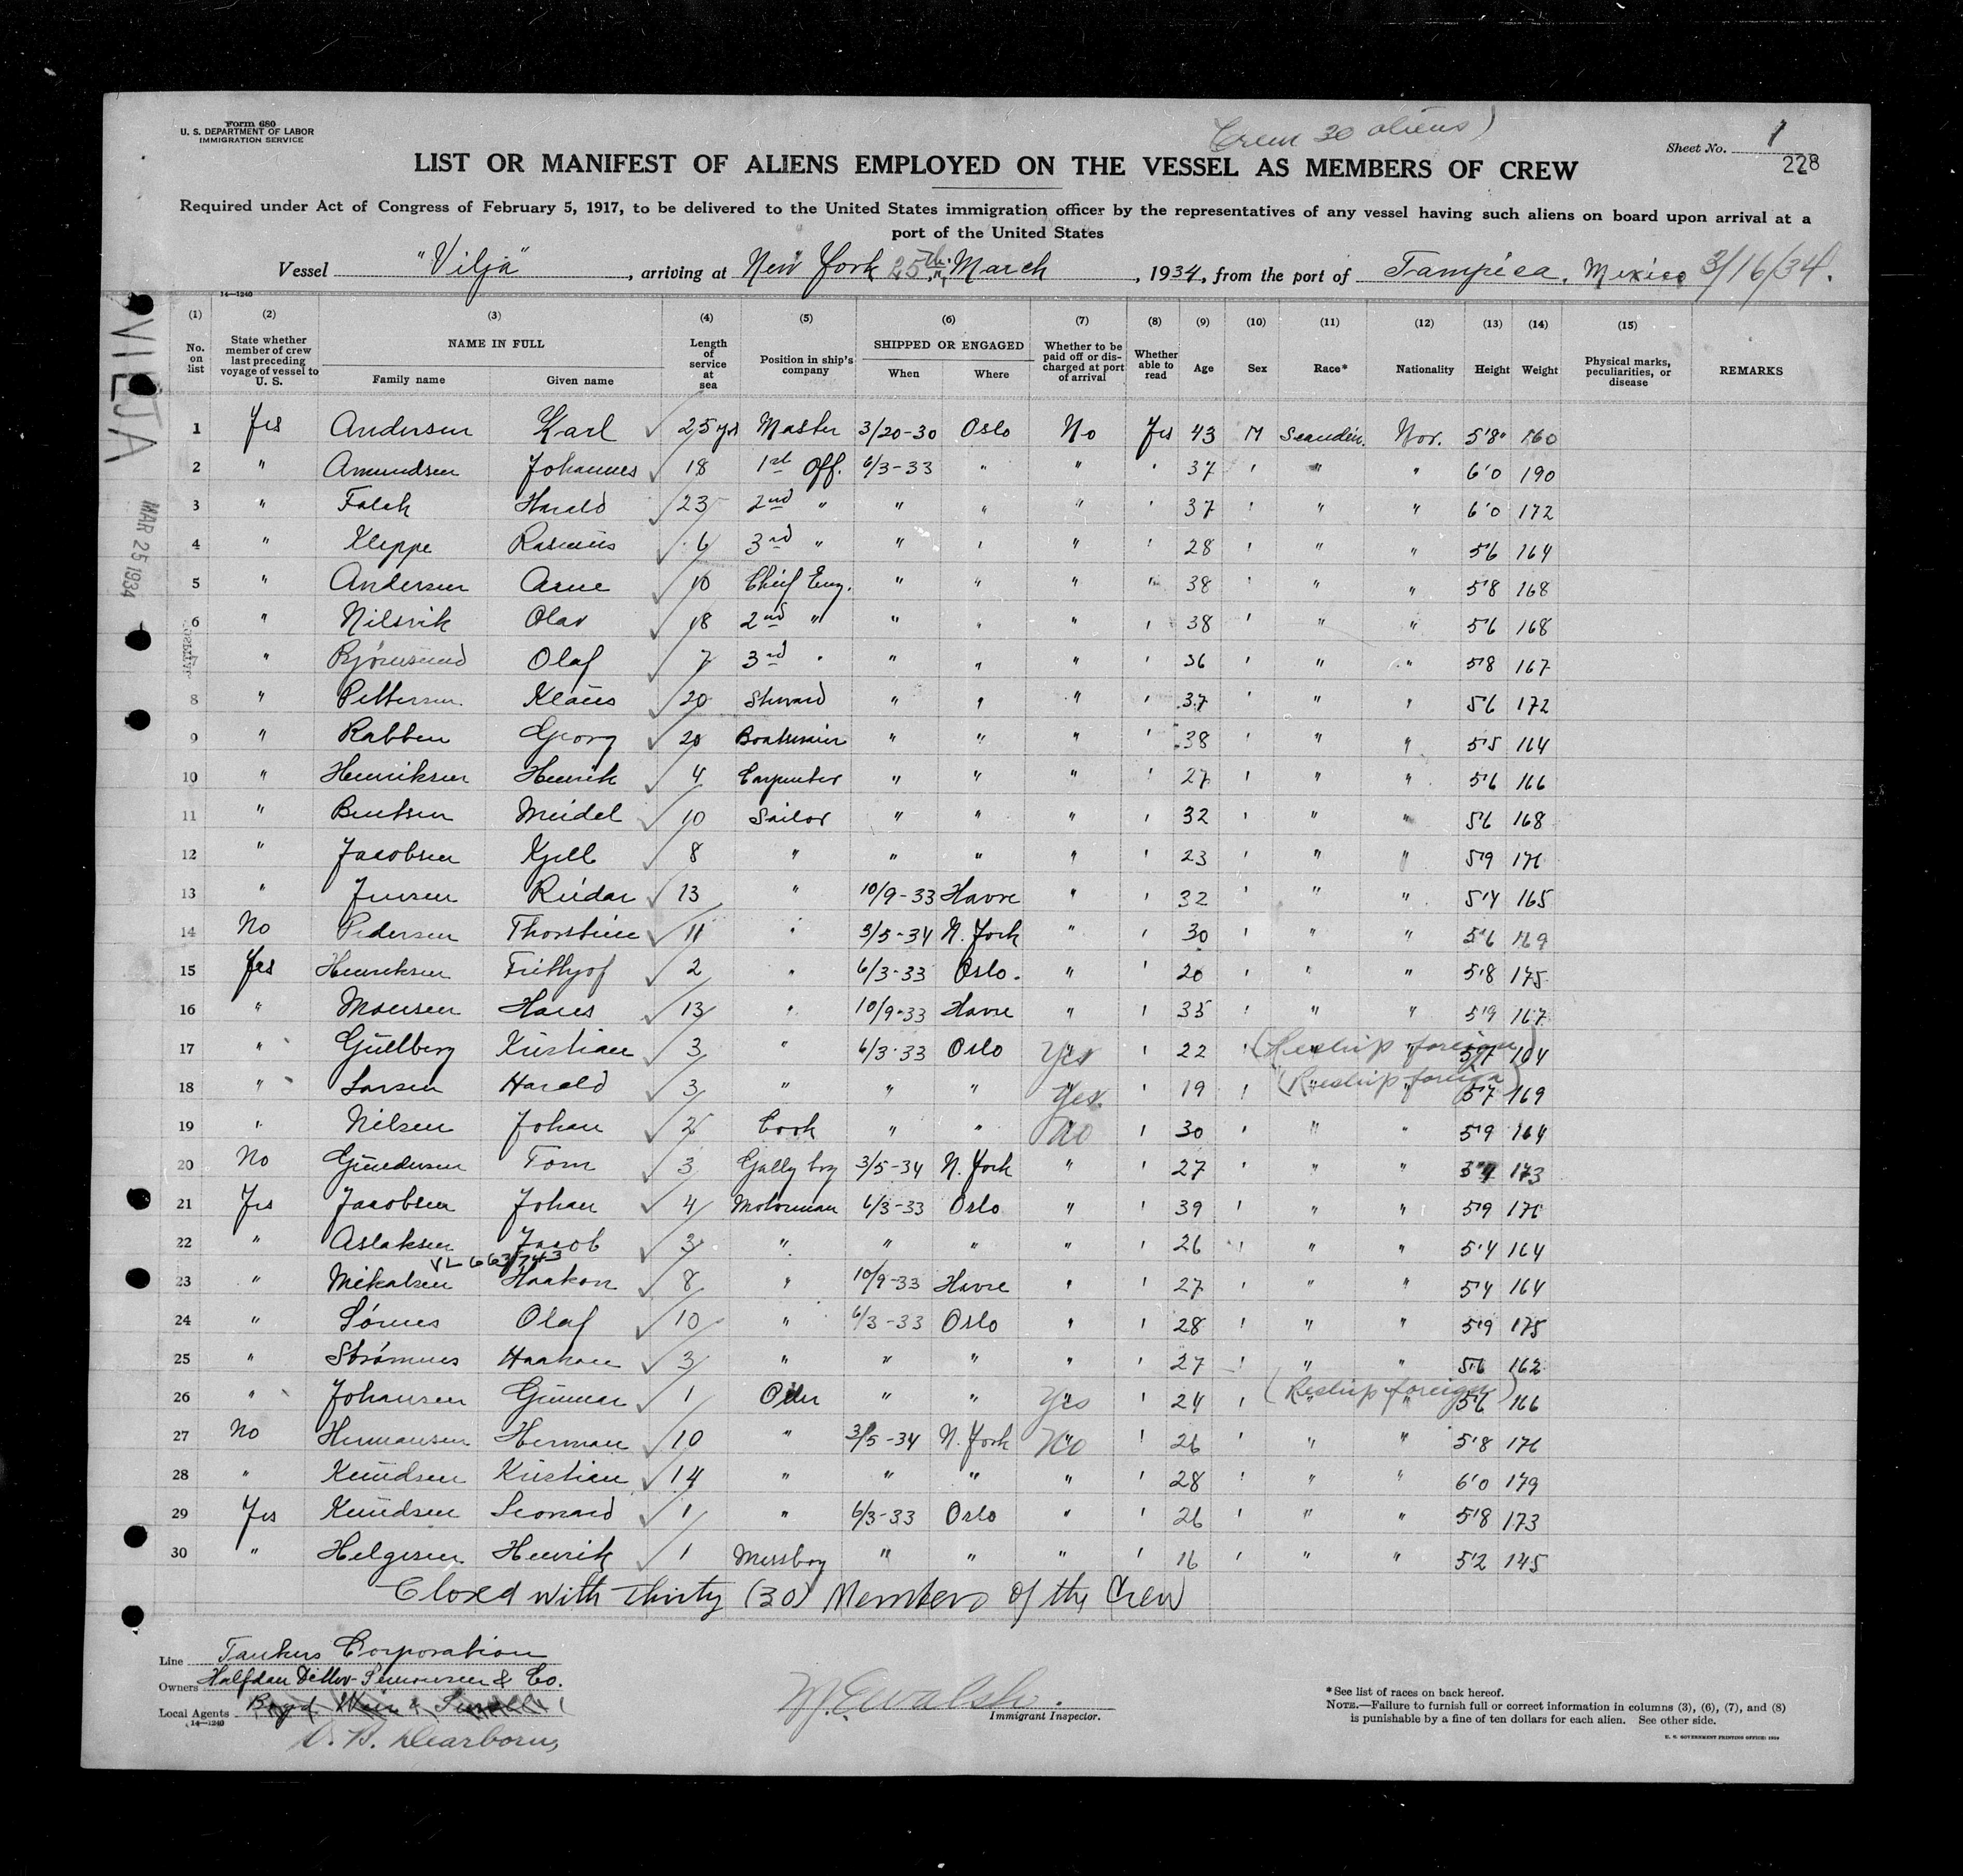 Form 680
U. S. DEPARTMENT OF LABOR
IMMIGRATION SERVICE
Crew 30 aliens)
Sheet No. 1
228
LIST OR MANIFEST OF ALIENS EMPLOYED ON THE VESSEL AS MEMBERS OF CREW
Required under Act of Congress of February 5, 1917, to be delivered to the United States immigration officer by the representatives of any vessel having such aliens on board upon arrival at a
port of the United States
Vessel "Vilja", arriving at New York 25th March, 1934, from the port of Tampico, Mexico 3/16/34.
14—1240
VILJA
MAR 25 1934
(1) (2) (3) (4) (5) (6) (7) (8) (9) (10) (11) (12) (13) (14) (15)
No. on list State whether member of crew last preceding voyage of vessel to U. S. NAME IN FULL Family name Given name Length of service at sea Position in ship's company SHIPPED OR ENGAGED When Where Whether to be paid off or discharged at port of arrival Whether able to read Age Sex Race* Nationality Height Weight Physical marks, peculiarities, or disease REMARKS
1 Yes Andersen Karl 25 yrs Master 3/20-30 Oslo No Yes 43 M Scandin. Nor. 5'8" 160
2 " Amundsen Johannes 18 1st Off. 6/3-33 " " " 37 " " " 6'0 190
3 " Falck Harald 23 2nd " " " " " 37 " " " 6'0 172
4 " Kleppe Rasmus 6 3rd " " " " " 28 " " " 5'6 164
5 " Andersen Arne 10 Chief Eng. " " " " 38 " " " 5'8 168
6 " Nilsvik Olav 18 2nd " " " " " 38 " " " 5'6 168
7 " Bjørnsund Olaf 7 3rd " " " " " 36 " " " 5'8 167
8 " Pettersen Klaus 20 Steward " " " " 37 " " " 5'6 172
9 " Rabben Georg 20 Boatswain " " " " 38 " " " 5'5 164
10 " Henriksen Henrik 4 Carpenter " " " " 27 " " " 5'6 166
11 " Bentsen Meidel 10 Sailor " " " " 32 " " " 5'6 168
12 " Jacobsen Kjell 8 " " " " " 23 " " " 5'9 176
13 " Jensen Reidar 13 " 10/9-33 Havre " " 32 " " " 5'4 165
14 No Pedersen Thorstein 11 " 3/5-34 N. York " " 30 " " " 5'6 169
15 Yes Henriksen Frithjof 2 " 6/3-33 Oslo. " " 20 " " " 5'8 175
16 " Monsen Hans 13 " 10/9-33 Havre " " 35 " " " 5'9 167
17 " Gullberg Kristian 3 " 6/3-33 Oslo Yes " 22 " (Reship foreign) " 5'7 164
18 " Larsen Harald 3 " " " Yes " 19 " (Reship foreign) " 5'7 169
19 " Nilsen Johan 2 Cook " " No " 30 " " " 5'9 164
20 No Gundersen Tom 3 Gally boy 3/5-34 N. York " " 27 " " " 173
21 Yes Jacobsen Johan 4 Motorman 6/3-33 Oslo " " 39 " " " 5'9 176
22 " Aslaksen Jacob 3 " " " " " 26 " " " 5'4 164
VL 663/743
23 " Mikalsen Haakon 8 " 10/9-33 Havre " " 27 " " " 5'4 164
24 " Sørnes Olaf 10 " 6/3-33 Oslo " " 28 " " " 5'9 175
25 " Strømnes Haakon 3 " " " " " 27 " " " 5'6 162
26 " Johansen Gunnar 1 Oiler " " Yes " 24 " (Reship foreign) " 5'6 166
27 No Hermansen Herman 10 " 3/5-34 N. York No " 26 " " " 5'8 176
28 " Knudsen Kristian 14 " " " " " 28 " " " 6'0 179
29 Yes Knudsen Leonard 1 " 6/3-33 Oslo " " 26 " " " 5'8 173
30 " Helgesen Henrik 1 Messboy " " " " 16 " " " 5'2 145
Closed with Thirty (30) Members of the Crew
Line Tankers Corporation
Owners Halfdan Ditlev-Simonsen & Co.
Local Agents Boyd Weir & Sewell
14—1240
D. B. Dearborn,
M.E. Walsh.
Immigrant Inspector.
*See list of races on back hereof.
NOTE.—Failure to furnish full or correct information in columns (3), (6), (7), and (8)
is punishable by a fine of ten dollars for each alien. See other side.
U. S. GOVERNMENT PRINTING OFFICE: 1930